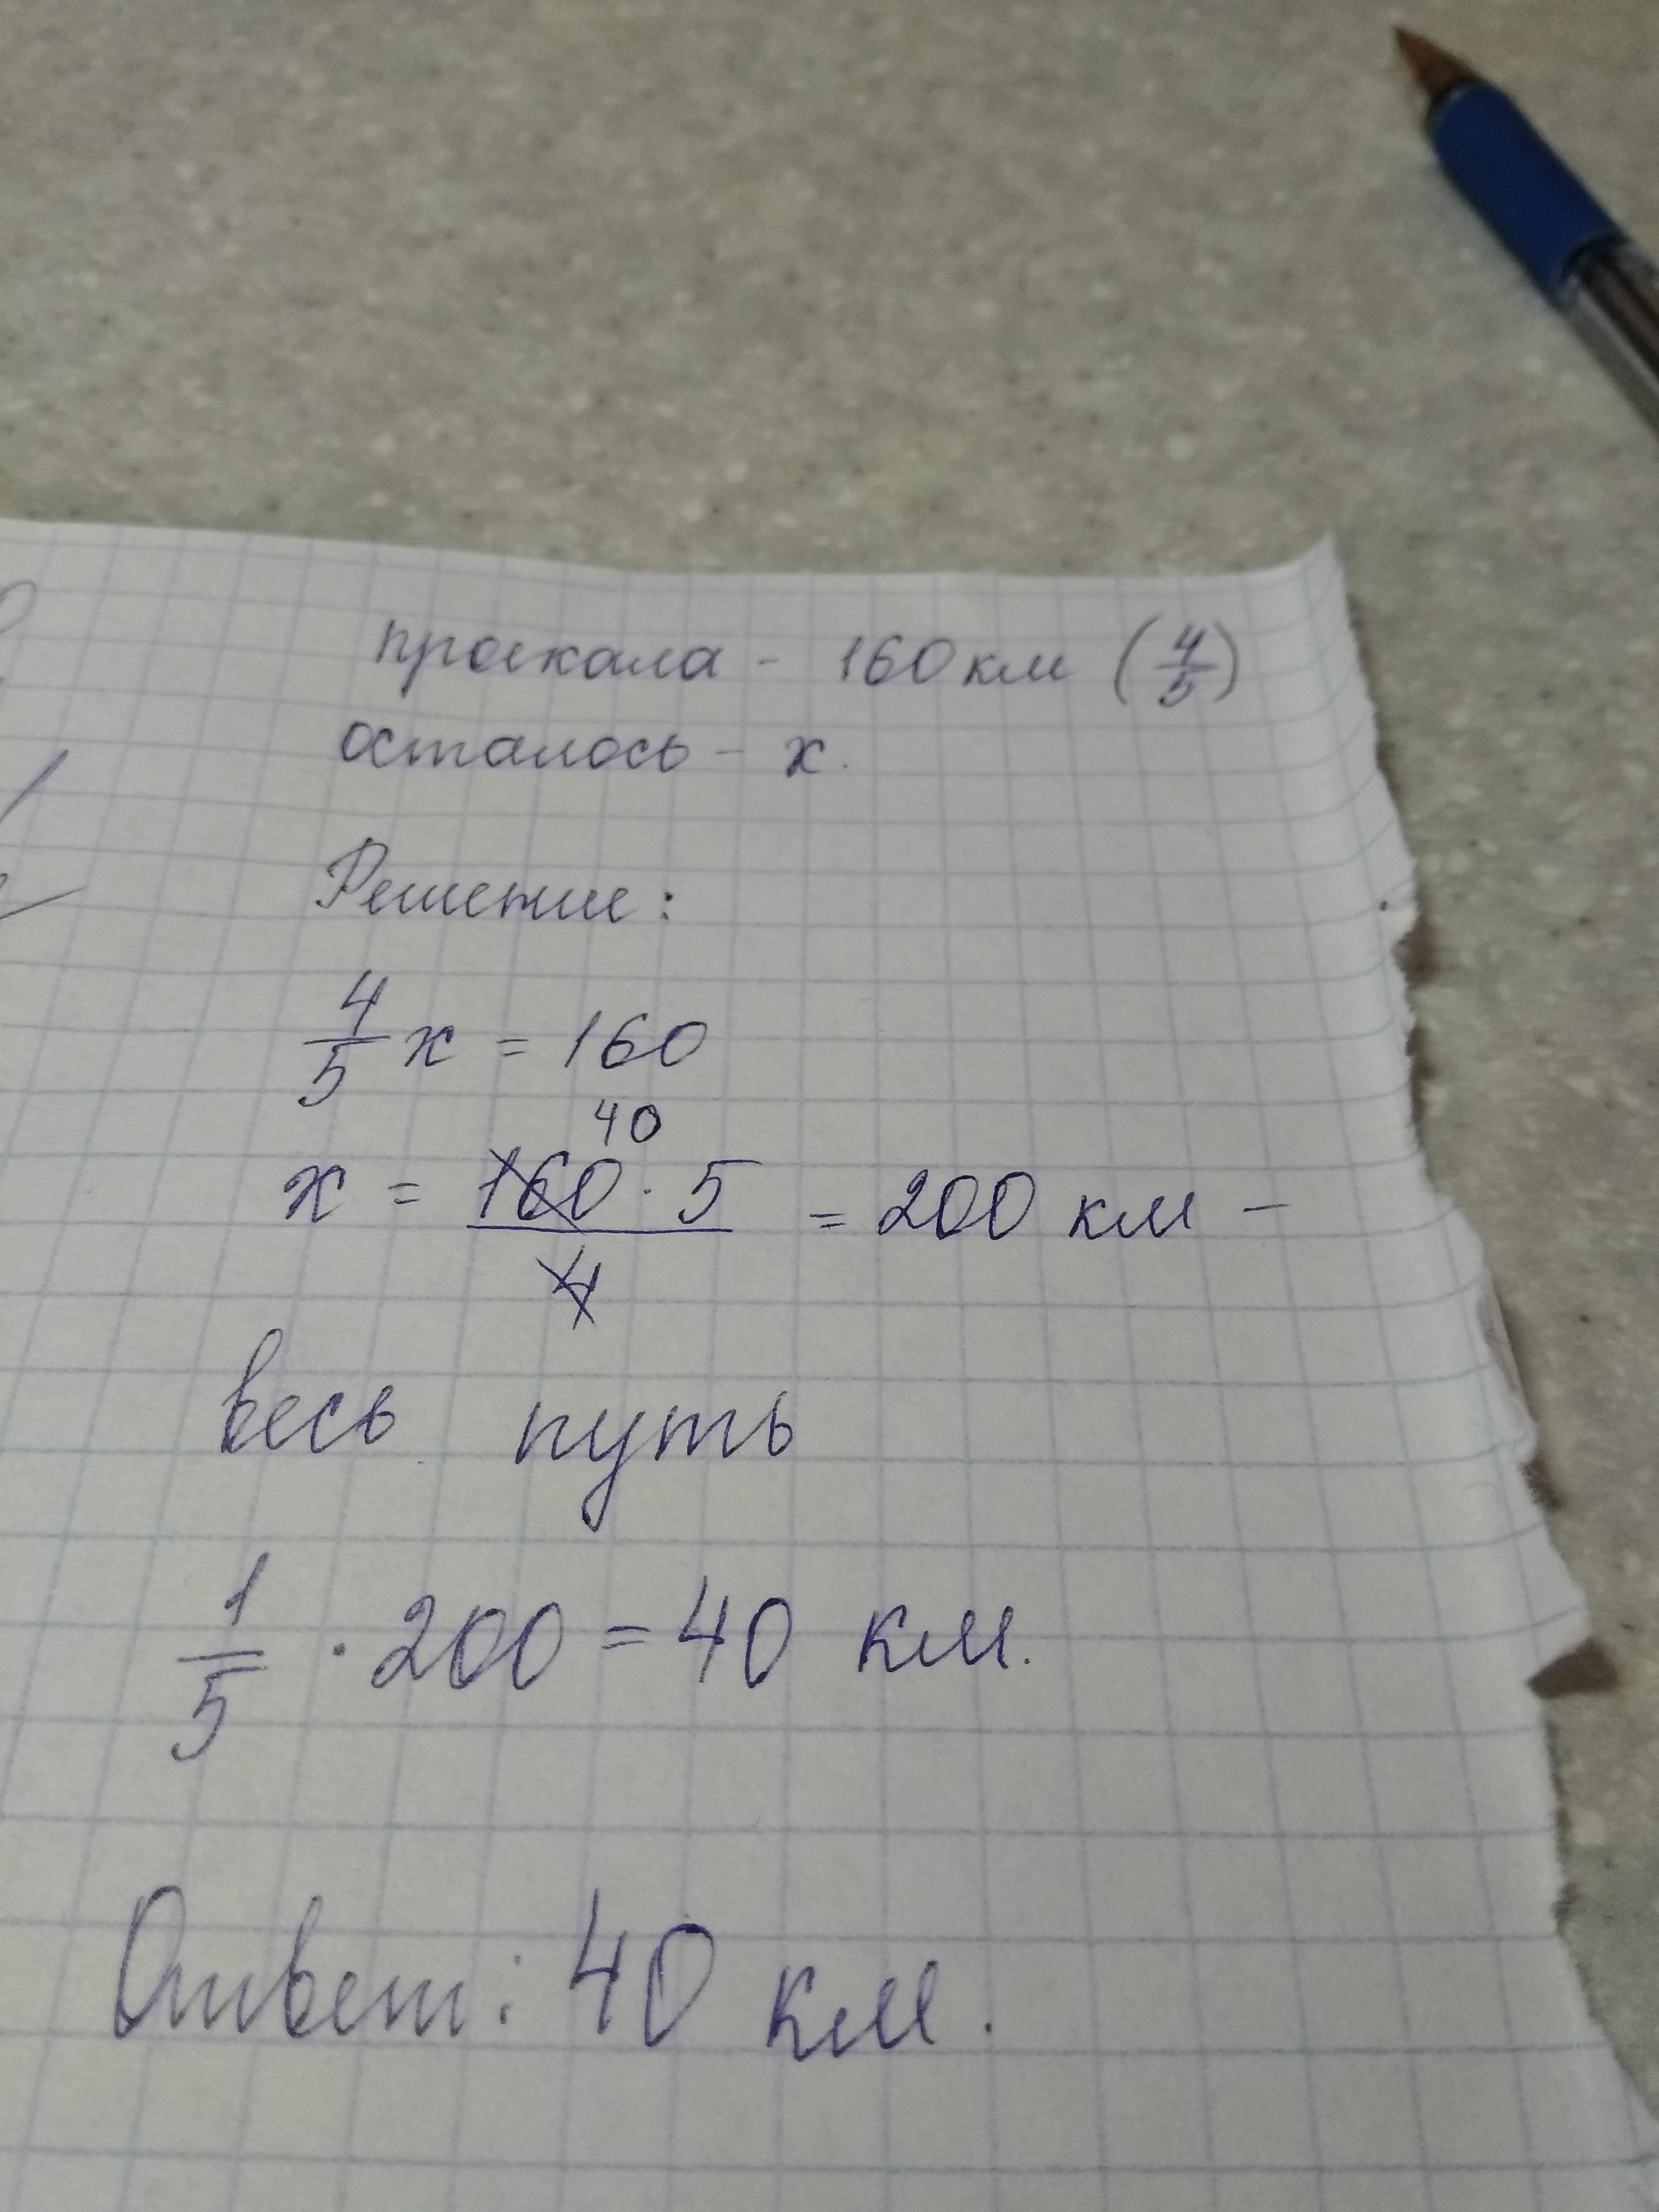 проехала - 160 км (4/5)
осталось - x.
Решение:
4/5 x = 160
40
x = 160 · 5 / 4 = 200 км -
весь путь
1/5 · 200 = 40 км.
Ответ: 40 км.